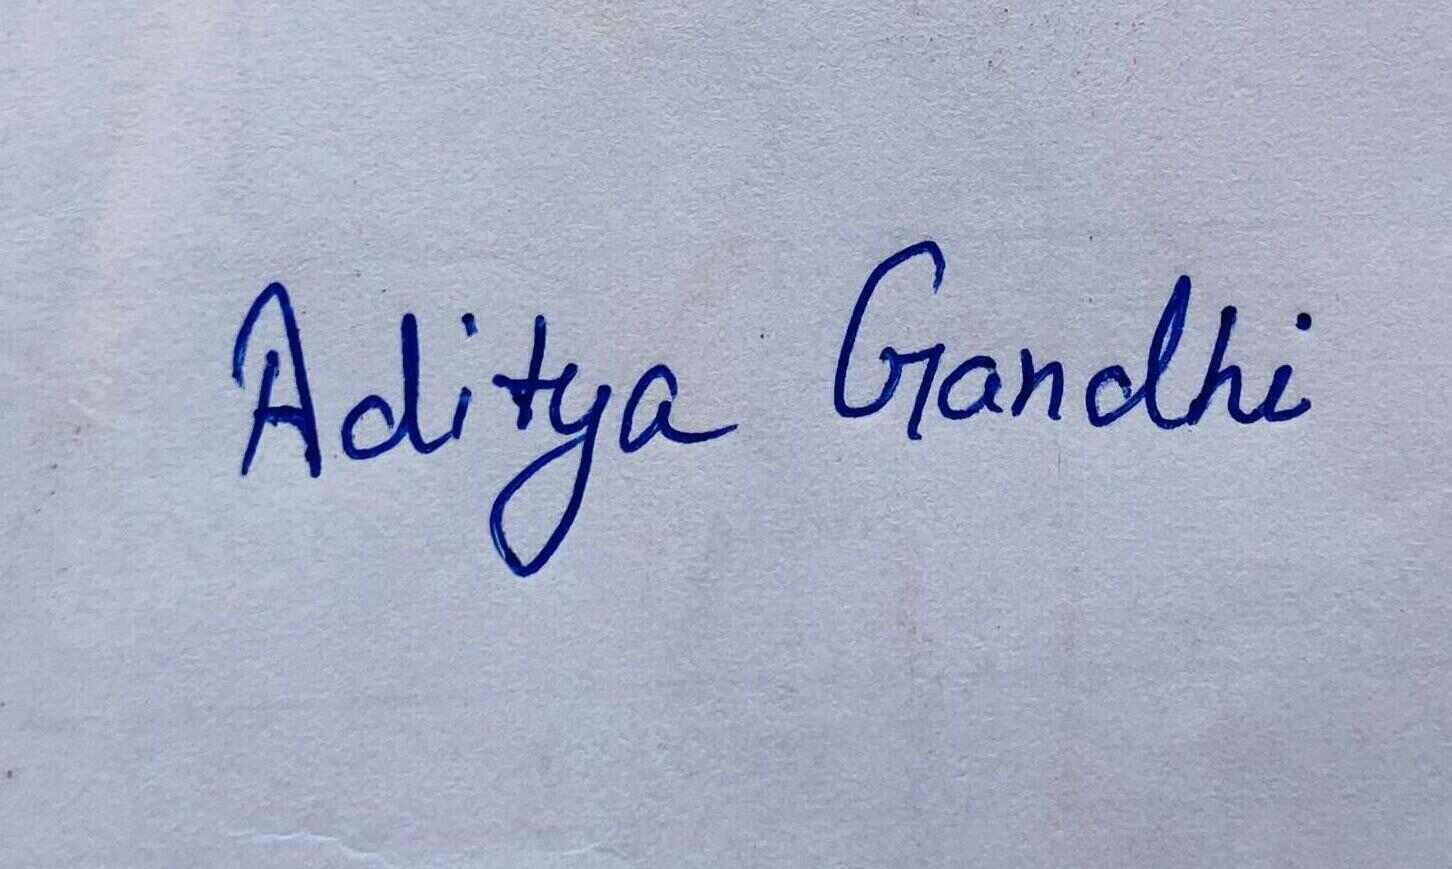 Aditya Gandhi